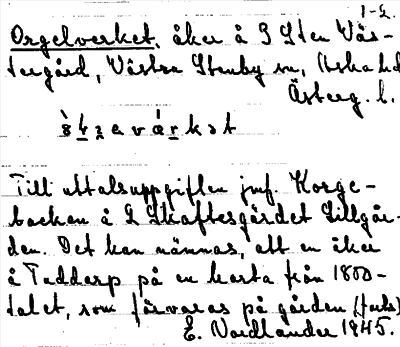 1-2.
Orgelverket, åker å S Sten Väs-
tergård, Västra Stenby sn, Aska hd
Östergl.
Till uttalsuppgiften jmf. Korge-
backen å L Skaftesgärdet Lillgår-
den. Det kan nämnas, att en åker
å Taddorp på en karta från 1800-
talet, som förvaras på gården
E. Nordlander 1945.